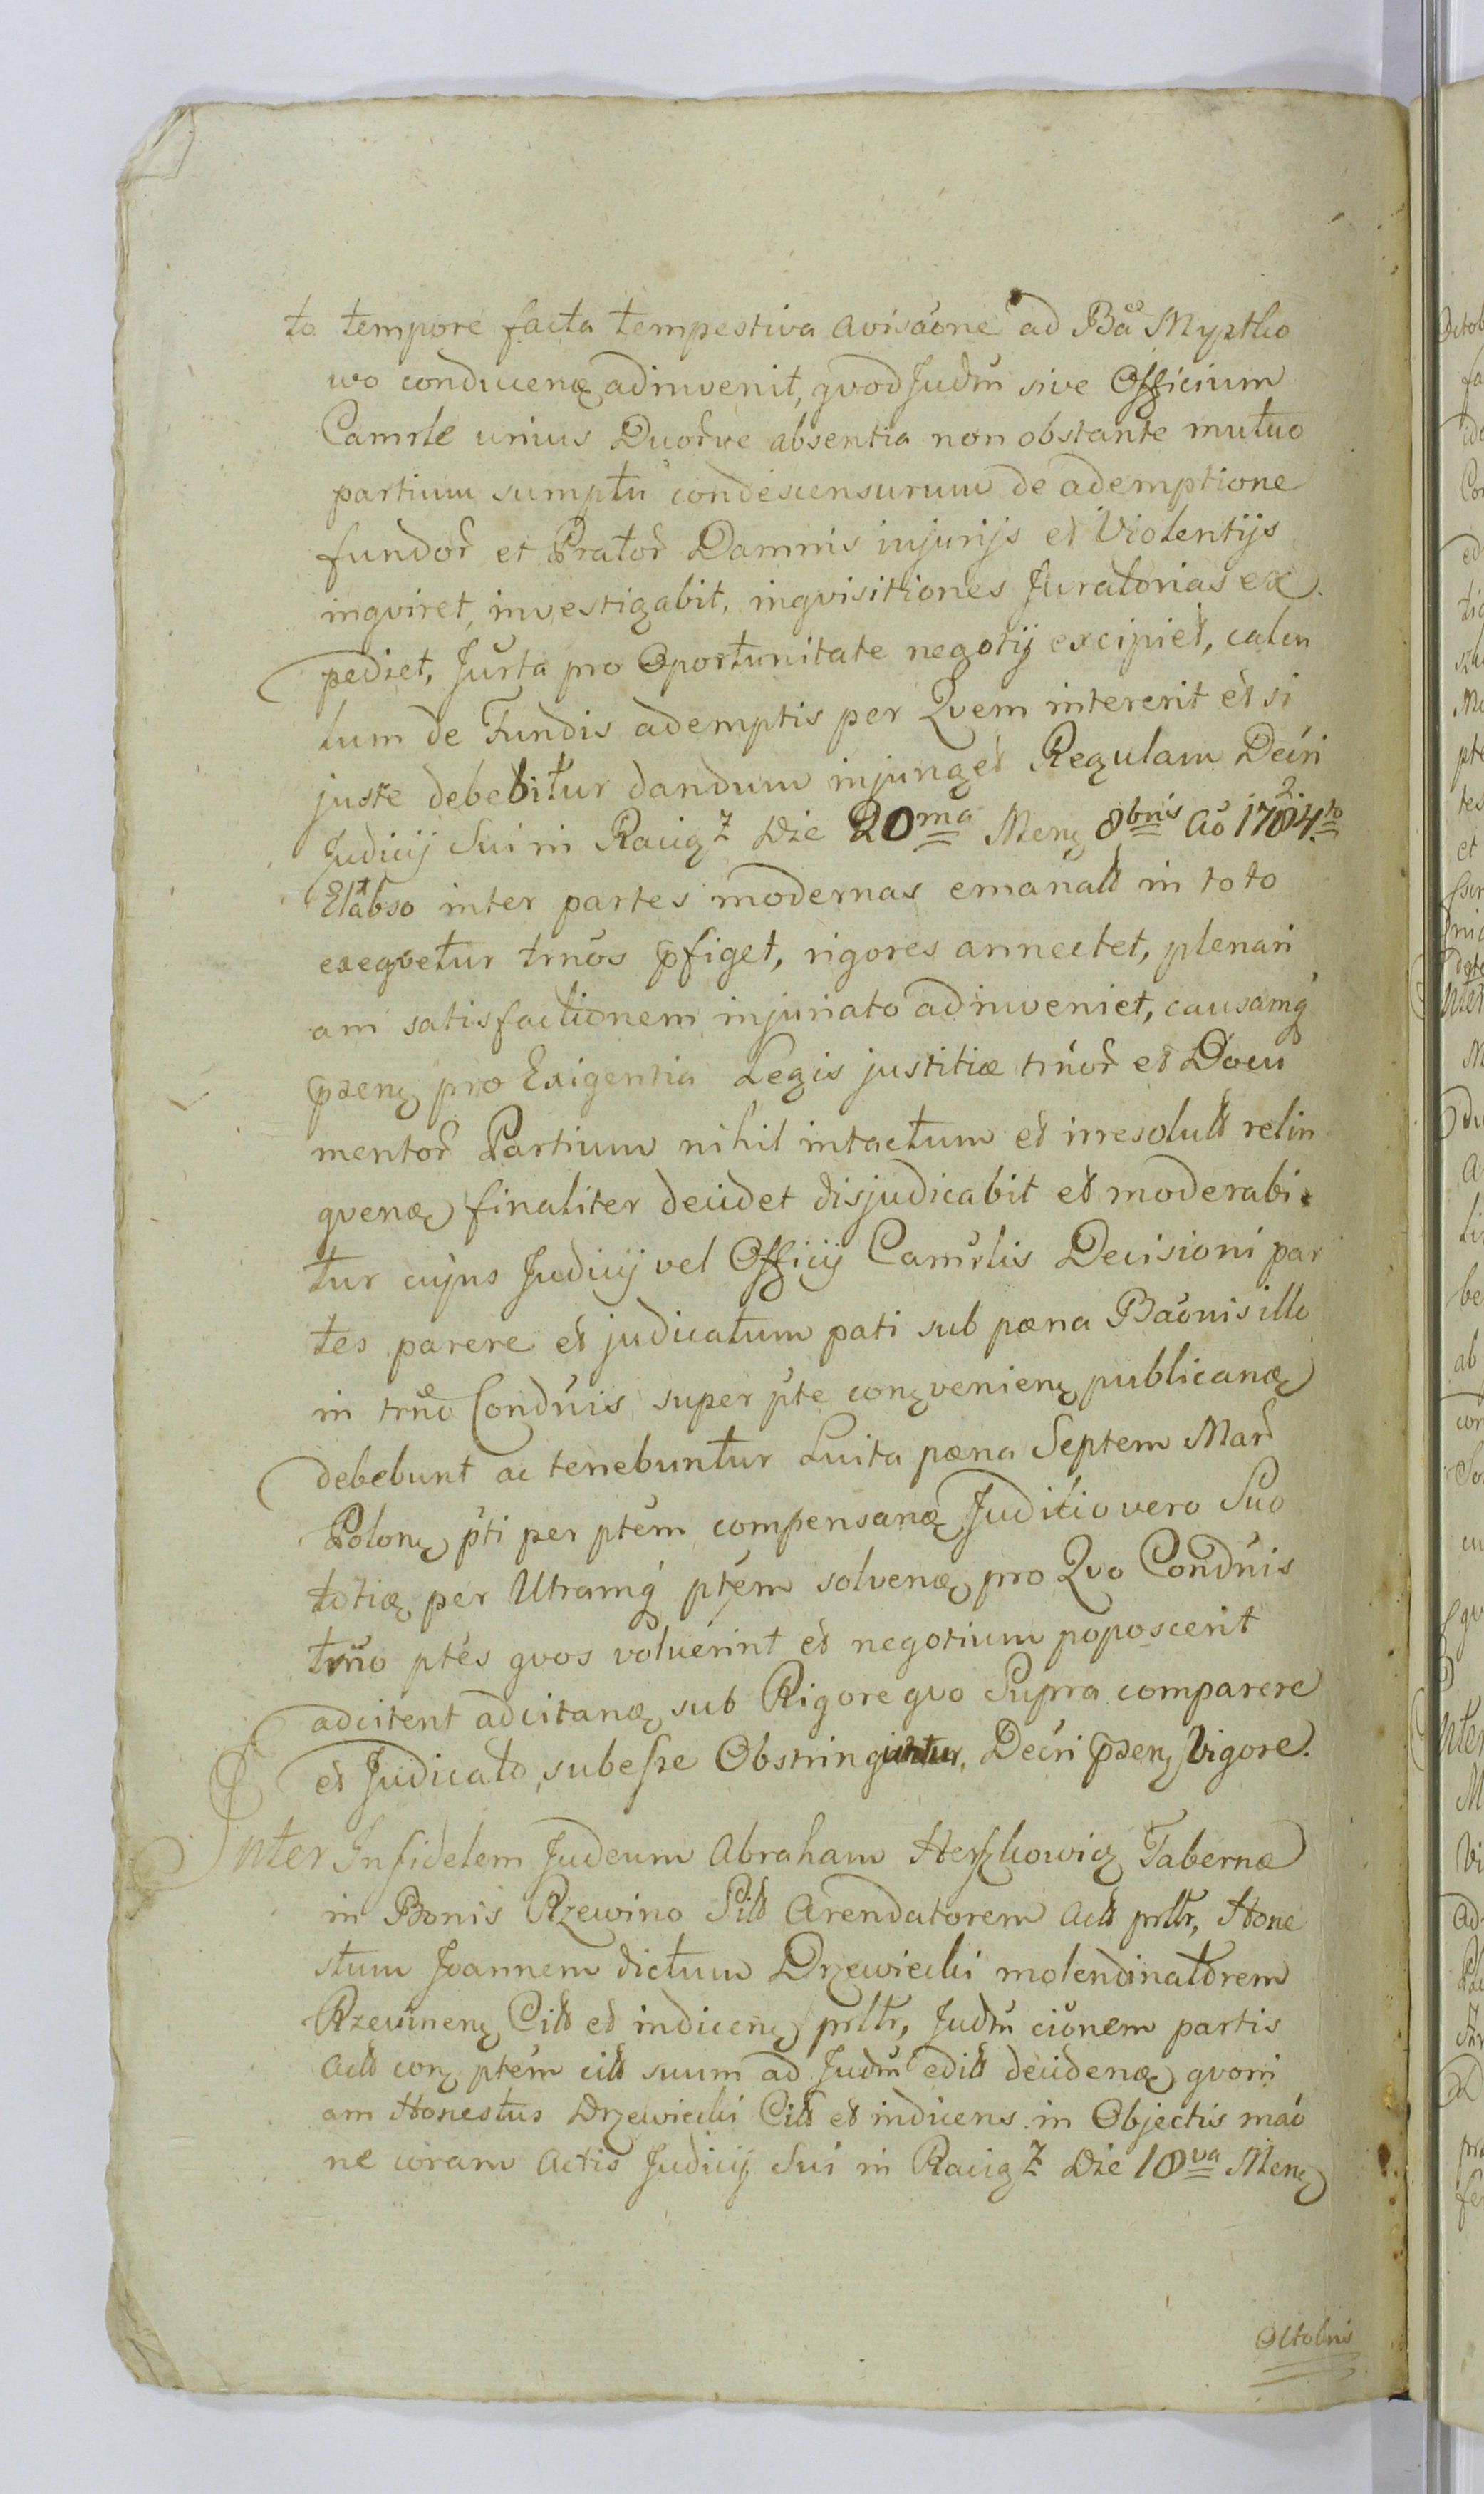 to tempore facta tempestiva avisaõne ad Bã Myszko
wo conducenꝫ adinvenit, qvod Judm̃ sive Officium
Camrle unius Duor̃ve absentia non obstante mutuo
partium sumptu condescensurum de ademptione
fundor̃ et Prator̃ Damnis injurijs et Violentijs
inqviret, investigabit, inqvisitiones Juratorias ex
pediet, Jurta pro Oportunitate negotij excipiet, calcu
lum de Fundis ademptis per Qvem intererit et si
juste debebitur dandum injunget Regulam Decri
Judicij Sui in Racigz Die 20ma Menꝫ 8bris Aõ 1782.
Elabso inter partes modernas emanatt in toto
exeqvetur trnõs pfiget, rigores annectet, plenari
am satisfactionem injuriato adinveniet, causamq́
pxenꝫ pro Exigentia Legis justitiæ trnõr et Docu
mentor̃ Partium nihil intactum et irresolutt relin
qvenꝫ finaliter decidet disjudicabit et moderabi
tur cujus Judicij vel Officij Camrlis Decisioni par
tes parere et judicatum pati sub pæna Baõnis illo
in trnõ Condnis super pte conꝫvenienꝫ publicanꝫ
debebunt ac tenebuntur Luita pæna Septem Mar̃
Polonꝫ pti per ptem compensanꝫ Juditio vero Suo
totiæ per Utramq́ ptem solvenꝫ pro Qvo Condnis
trno ptes qvos voluerint et negotium poposcerit
adcitent adcitanꝫ sub Rigore qvo Supra comparere
et Judicato subesse Obstringuntur, Decri pxenꝫ Vigore.
Inter Infidelem Judeum Abraham Herszkowicz Tabernæ
in Bonis Rzewino Sitt Arendatorem Actt prltr, Hone
stum Joannem dictum Drzewiecki molendinatorem
Rzewinenꝫ Citt et indicenꝫ prltr, Judm̃ ciõnem partis
Actt conꝫ ptem citt suum ad Judm̃ editt decidenꝫ qvoni
am Honestus Drzewiecki Citt et indicens in Objectis maõ
ne coram Actis Judicij Sui in Racigz Die 18va Menꝫ
Octobris